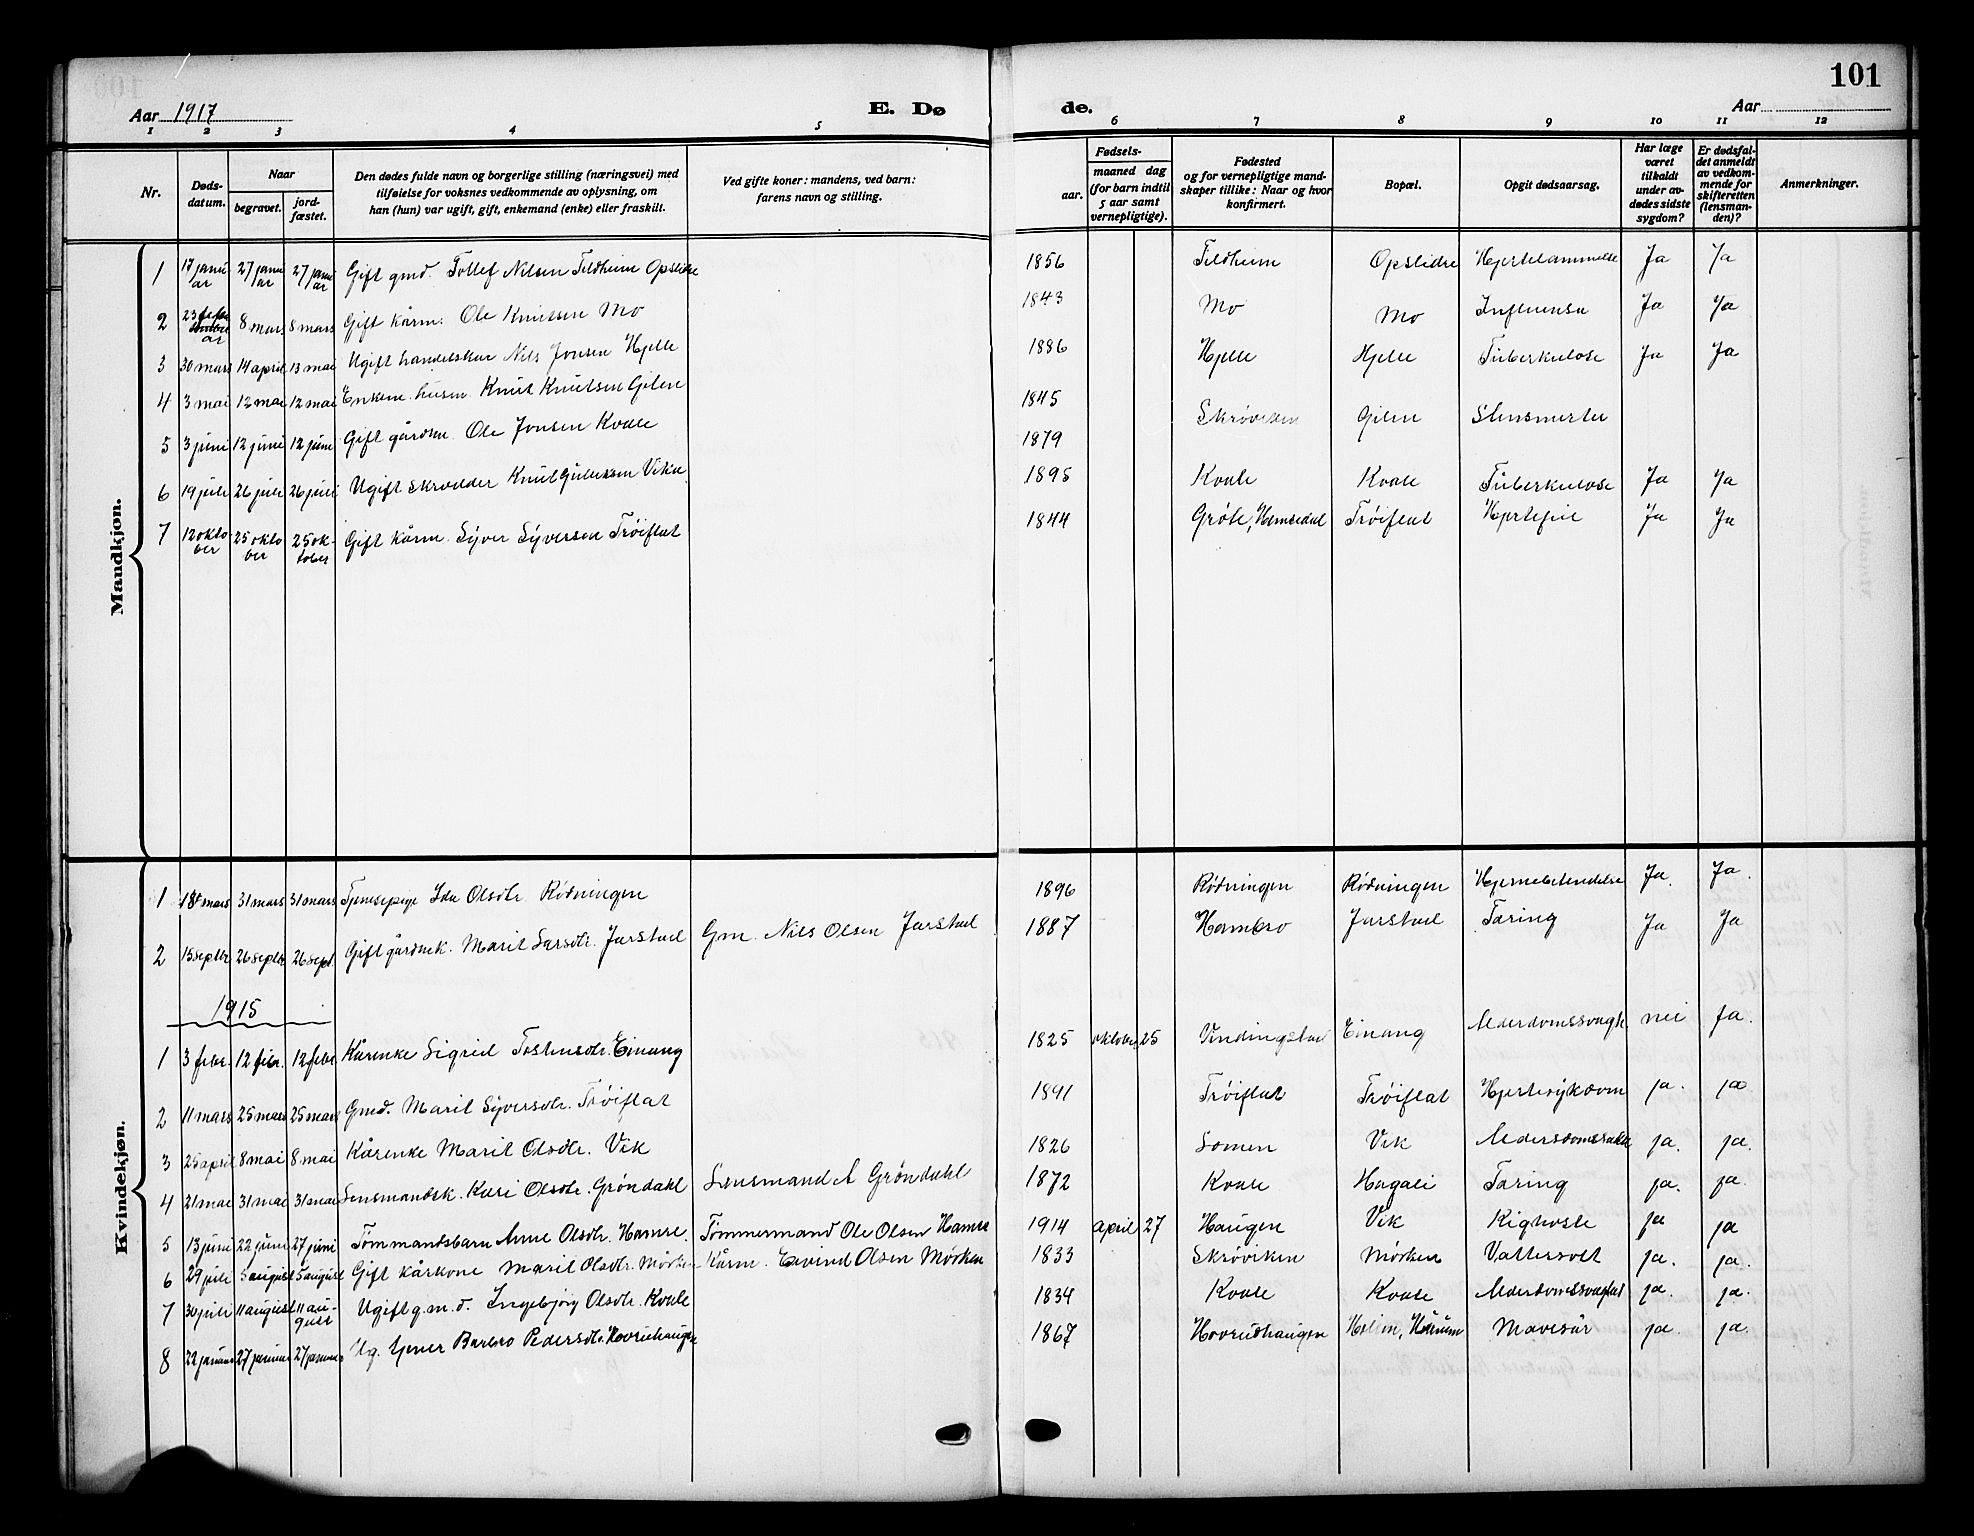 101
Aar 1917
E. Dø
de.
Aar
1 2 3 4 5 6 7 8 9 10 11 12
Nr.
Døds-
datum.
Naar
begravet.
jord-
fæstet.
Den dødes fulde navn og borgerlige stilling (næringsvei) med
tilføielse for voksnes vedkommende av oplysning, om
han (hun) var ugift, gift, enkemand (enke) eller fraskilt.
Ved gifte koner: mandens, ved barn:
farens navn og stilling.
Fødsels-
aar.
maaned dag
(for barn indtil
5 aar samt
vernepligtige).
Fødested
og for vernepligtige mand-
skaper tillike: Naar og hvor
konfirmert.
Bopæl.
Opgit dødsaarsag.
Har læge
været
tilkaldt
under av-
dødes sidste
sygdom?
Er dødsfal-
det anmeldt
av vedkom-
mende for
skifteretten
(lensman-
den)?
Anmerkninger.
Mandkjøn.
1 17 janu ar 27 janu ar 27 janu ar Gift gmd. Tollef Nilsen Tildheim Opslidre 1856 Tildheim Opslidre Hjertelammelse Ja Ja
2 23 febr ar 8 mars 8 mars Gift kårm. Ole Knutsen Mo 1843 Mo Mo Influensa Ja Ja
3 30 mars 14 april 13 mai Ugift handelskar Nils Jonsen Hjelle 1886 Hjelle Hjelle Tuberkulose Ja Ja
4 3 mai 12 mai 12 mai Enkem. husm. Knut Knutsen Gilen 1845 Skrøviken Gilen Stensmerter
5 3 juni 12 juni 12 juni Gift gårdm. Ole Jonsen Kvale 1879
6 19 juli 26 juli 26 juli Ugift skrædder Knut Gulliksen Vika 1895 Kvale Kvale Tuberkulose Ja Ja
7 12 okto ber 25 okto ber 25 ok- tober Gift kårm. Syver Syversen Trøiflat 1844 Grøte, Hemsedal Trøiflat Hjertefeil Ja Ja
Kvindekjøn.
1 18 mars 31 mars 31 mars Tjenestpige Ida Olsdtr. Rødningen 1896 Rødningen Rødningen Hjernebetendelse Ja. Ja.
2 15 septbr 26 septbr 26 sept. Gift gårdmk. Marit Larsdtr. Jarstad Gm. Nils Olsen Jarstad 1887 Hambro Jarstad Tæring Ja Ja
1915
1 3 febr. 12 febr. 12 febr. Kårenke Sigrid Tostensdtr. Einang 1825 oktober 25 Vindingstad Einang Alderdomssvagh. nei Ja.
2 11 mars 25 mars 25 mars Gmd. Marit Syversdtr. Trøiflat 1841 Trøiflat Trøiflat Hjertesykdom ja. ja
3 25 april 8 mai 8 mai Kårenke Marit Olsdtr. Vik 1826 Lomen Vik ja. ja.
4 21 mai 31 mai 31 mai Lensmandsk. Kari Olsdtr. Grøndahl Lensmand A Grøndahl 1872 Kvale Hagali Tæring ja. ja.
5 13 juni 22 juni 27 juni Tømmandsbarn Anne Olsdtr. Hamre. Tømmermand Ole Olsen Hamre 1914 april 27 Haugen Vik Kighoste ja ja
6 29 juli 5 august 5 august Gift kårkone Marit Olsdtr. Mørken Kårm. Eivind Olsen Mørken 1833 Skrøviken Mørken Vattersott ja. ja.
7 30 juli 11 august 11 au- gust Ugift g.m.d. Ingebjørg Olsdtr. Kvale 1834 Kvale Kvale Alderdomssvaghet ja. ja.
8 22 januar 27 januar 27 januar Ug. Barbro Pedersdtr. Hovrudhaugen 1867 Hovrudhaugen Mavesår ja. ja.